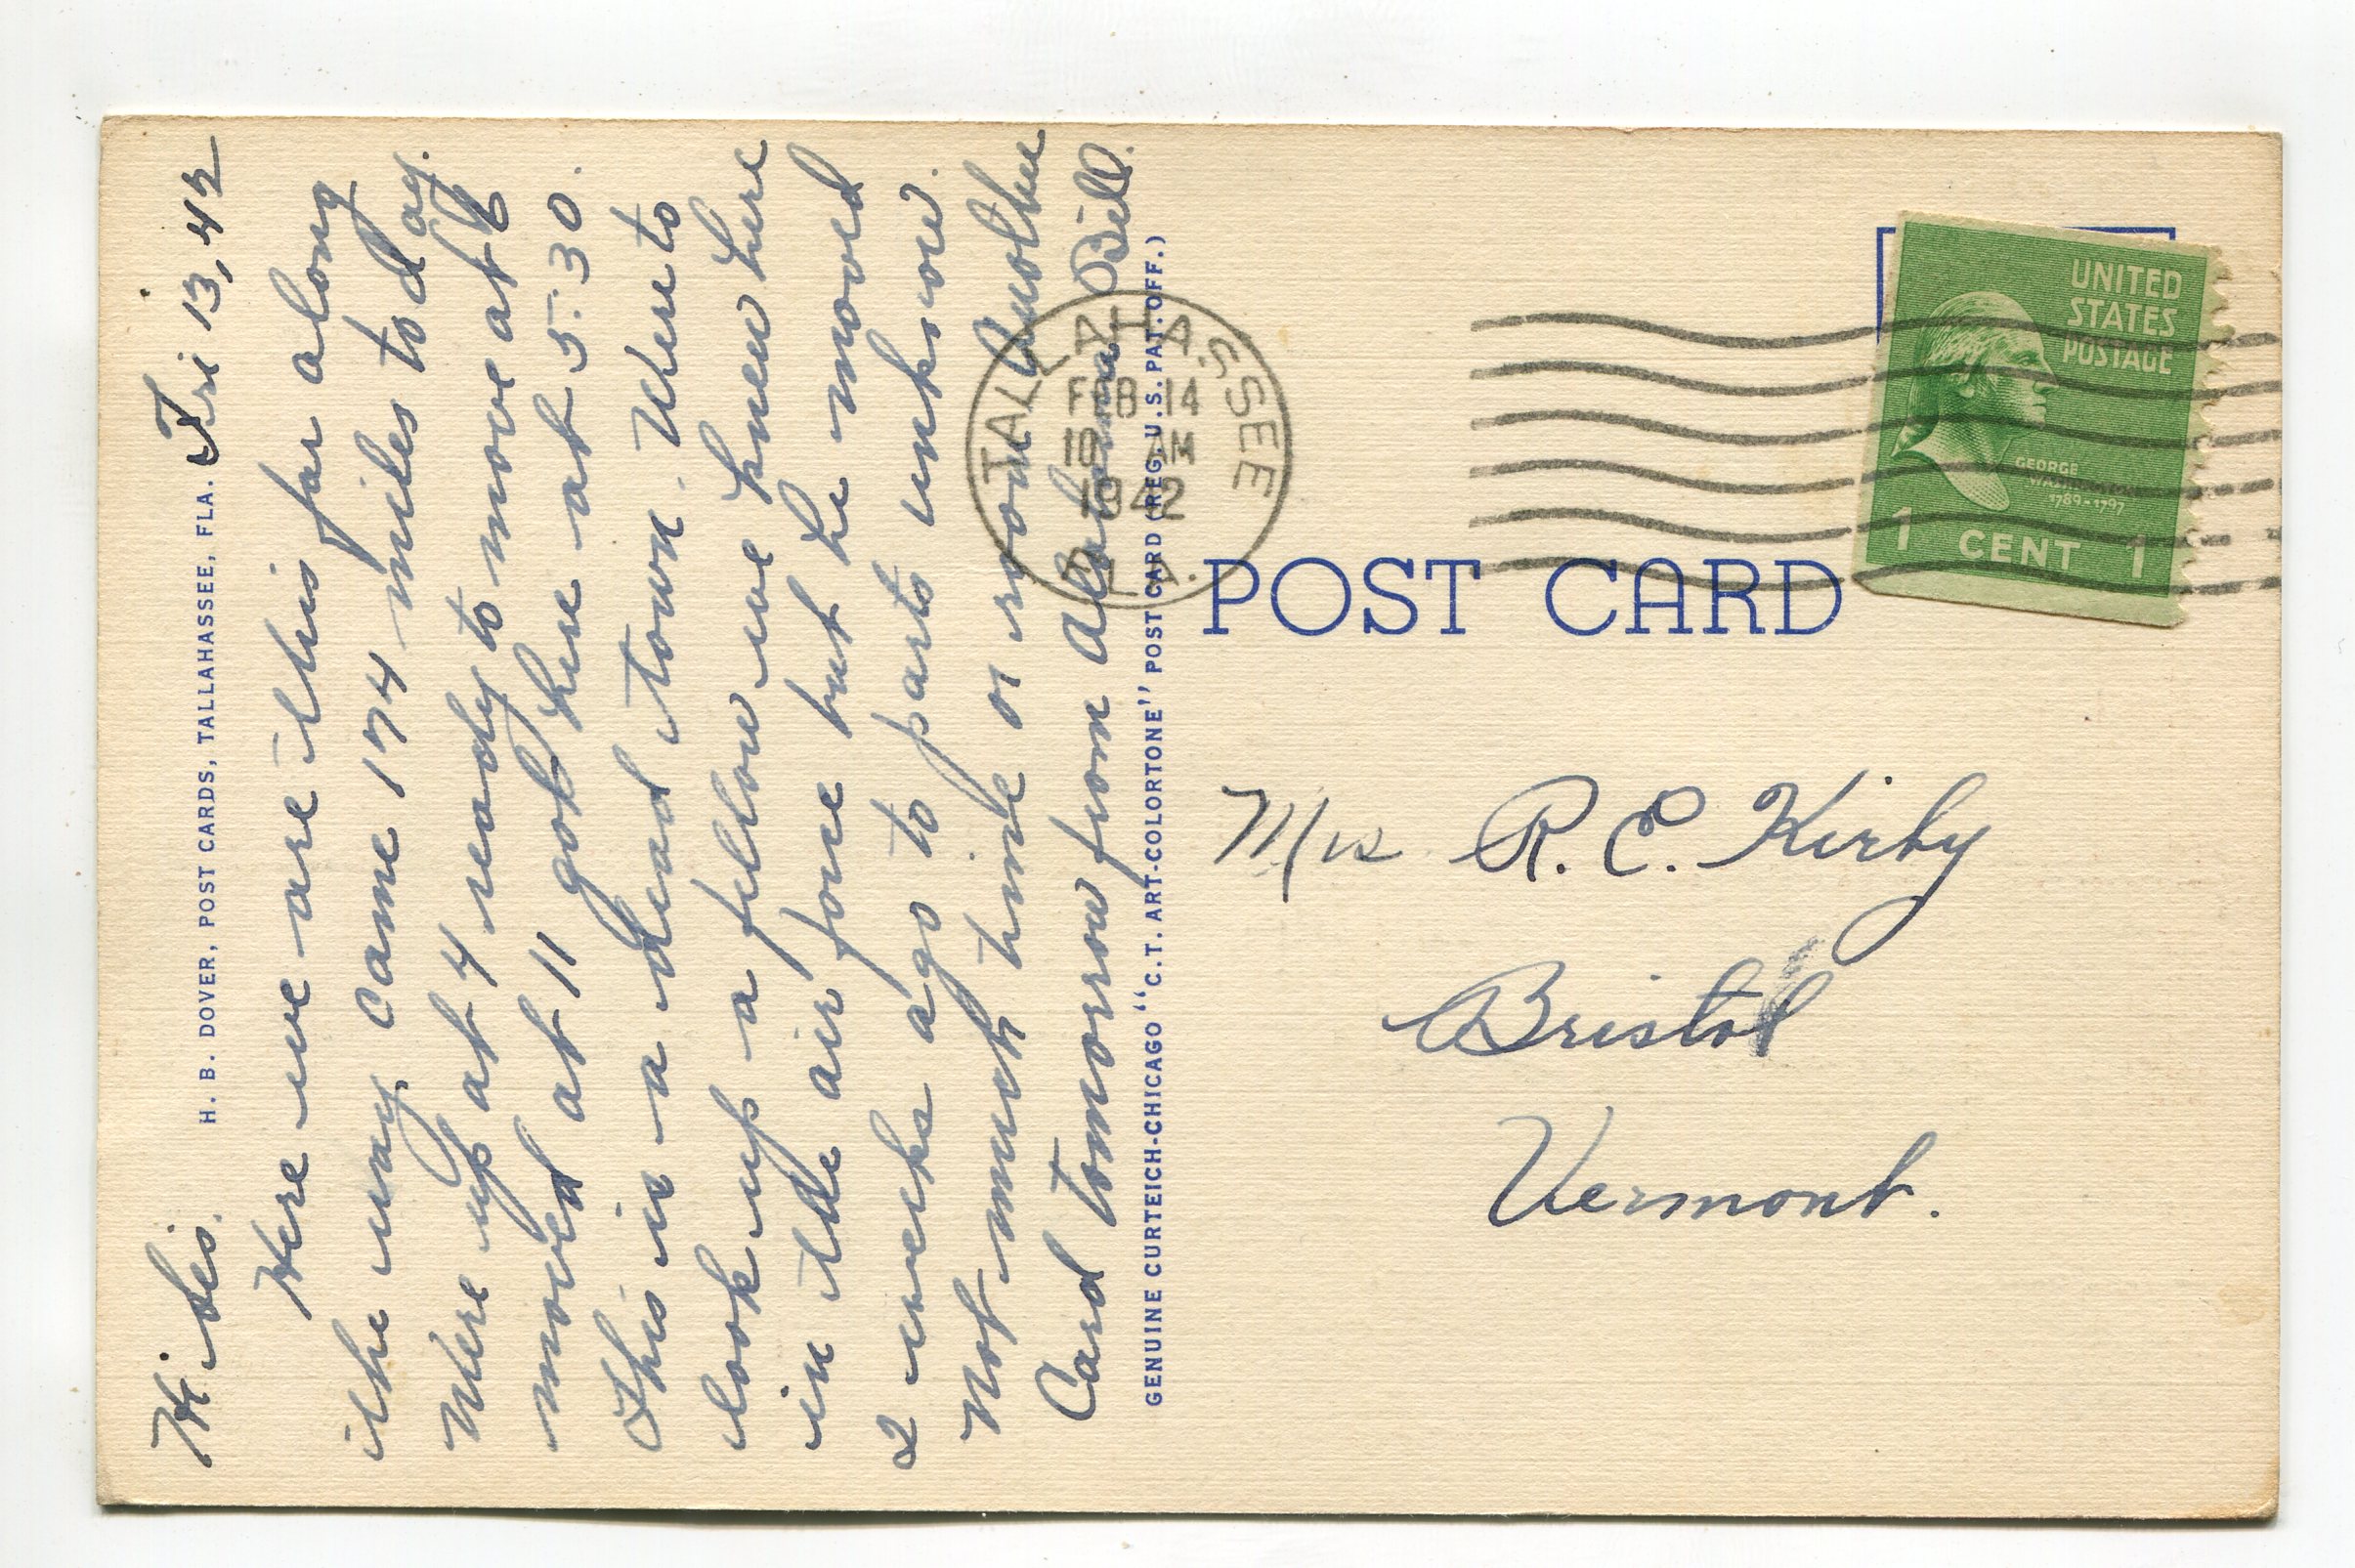 H. B. DOVER, POST CARDS, TALLAHASSEE, FLA.
Fri 13, 42
Hi Sis.
Here we are this far along
the way came 174 miles today.
Were up at 4 ready to move at 6
moved at 11 got here at 5:30.
This is a dead town. Were to
look up a fellow we knew here
in the air force but he moved
2 weeks ago to parts unknow.
Not much time or room Another
Card tomorrow from Alabama Bill.
GENUINE CURTEICH-CHICAGO "C.T. ART-COLORTONE" POST CARD (REG. U.S. PAT. OFF.)
TALLAHASSEE
FEB 14
10 AM
1942
FLA.
POST CARD
UNITED
STATES
POSTAGE
GEORGE
WASHINGTON
1789-1797
1 CENT 1
Mrs R. E. Kirby
Bristol
Vermont.